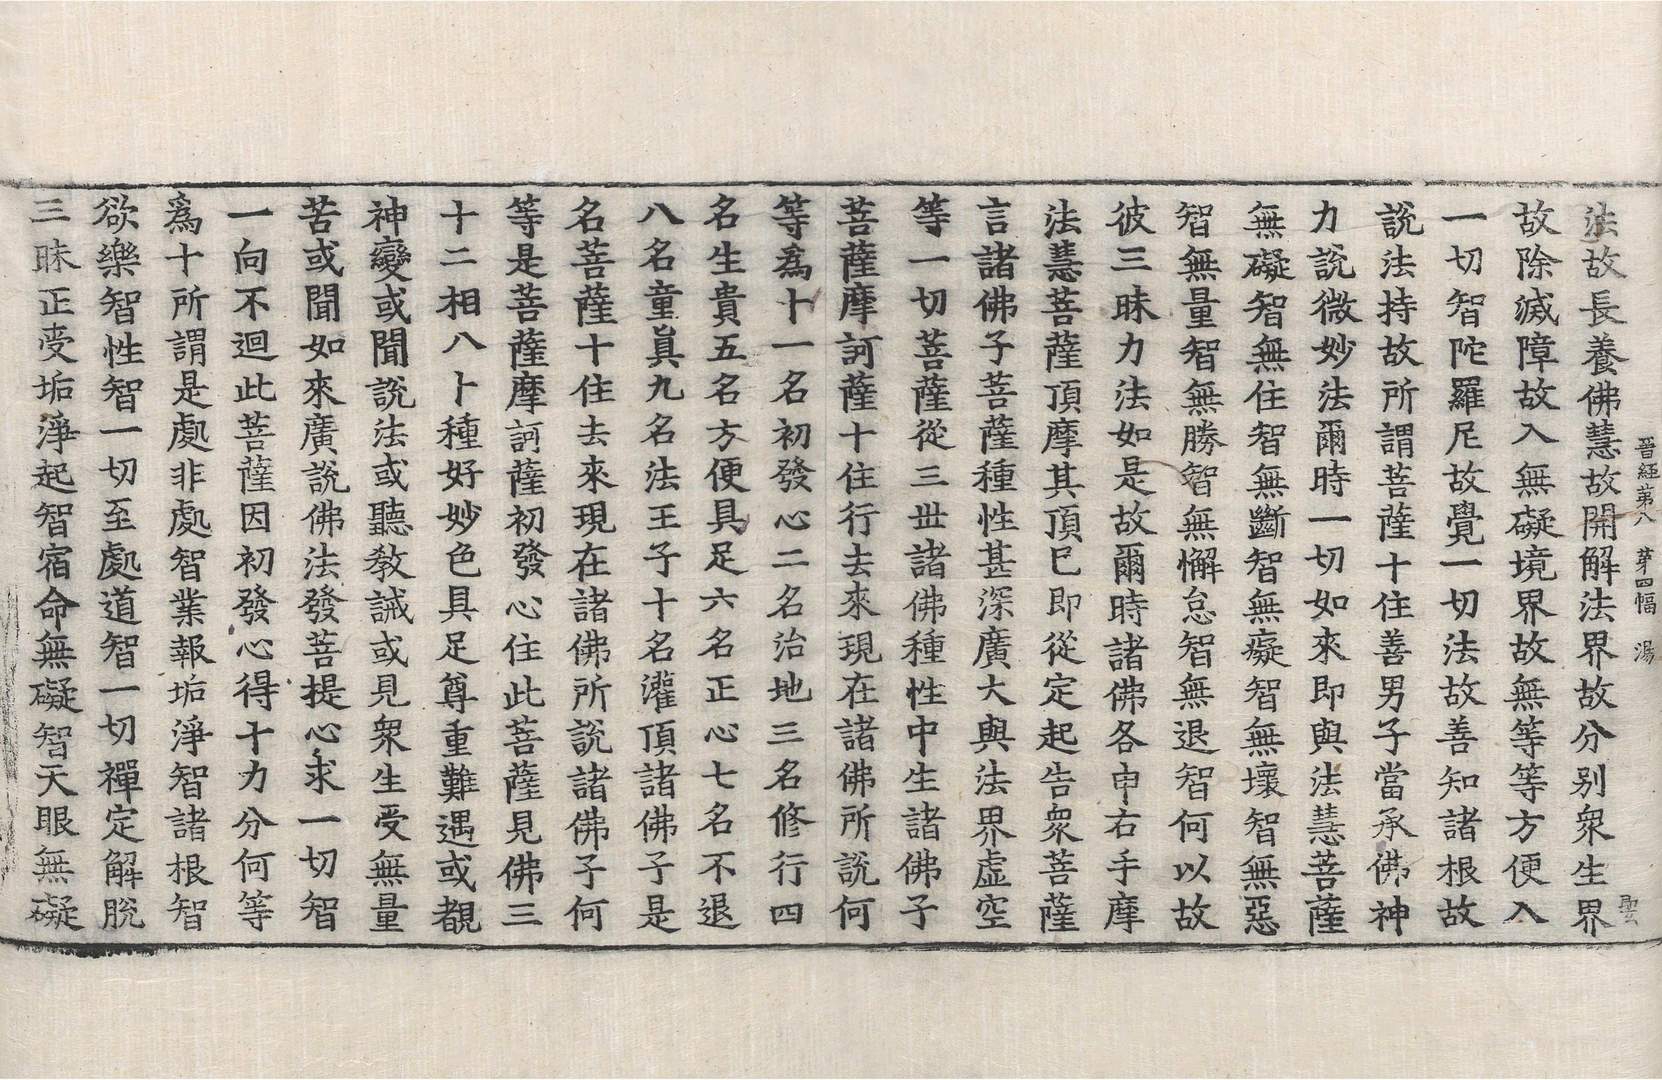 晉經第八　第四幅　湯
雲
法故長養佛慧故開解法界故分别衆生界
故除滅障故入無礙境界故無等等方便入
一切智陀羅尼故覺一切法故善知諸根故
說法持故所謂菩薩十住善男子當承佛神
力說微妙法爾時一切如來即與法慧菩薩
無礙智無住智無斷智無癡智無壞智無惡
智無量智無勝智無懈怠智無退智何以故
彼三昧力法如是故爾時諸佛各申右手摩
法慧菩薩頂摩其頂已即從定起告衆菩薩
言諸佛子菩薩種性甚深廣大與法界虛空
等一切菩薩從三世諸佛種性中生諸佛子
菩薩摩訶薩十住行去來現在諸佛所說何
等爲十一名初發心二名治地三名修行四
名生貴五名方便具足六名正心七名不退
八名童眞九名法王子十名灌頂諸佛子是
名菩薩十住去來現在諸佛所說諸佛子何
等是菩薩摩訶薩初發心住此菩薩見佛三
十二相八十種好妙色具足尊重難遇或覩
神變或聞說法或聽教誡或見衆生受無量
苦或聞如來廣說佛法發菩提心求一切智
一向不迴此菩薩因初發心得十力分何等
爲十所謂是處非處智業報垢淨智諸根智
欲樂智性智一切至處道智一切禪定解脫
三昧正受垢淨起智宿命無礙智天眼無礙